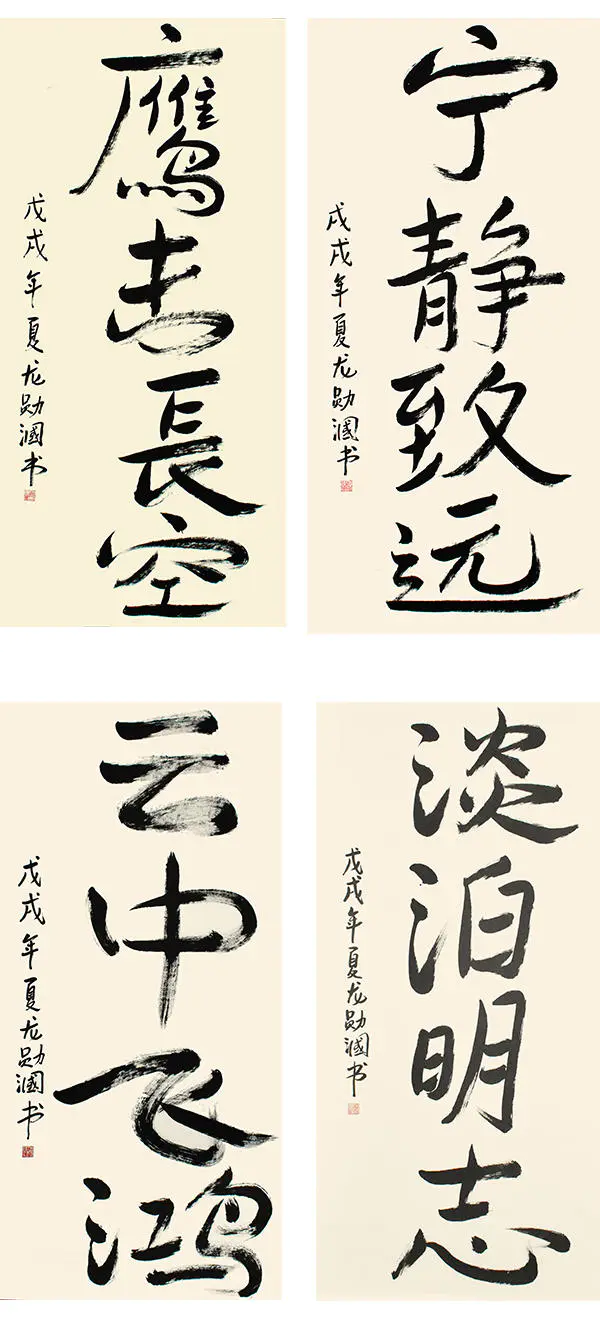 鷹击長空
戊戌年夏龙勋漍书
宁静致远
戊戌年夏龙勋漍书
云中飞鸿
戊戌年夏龙勋漍书
淡泊明志
戊戌年夏龙勋漍书